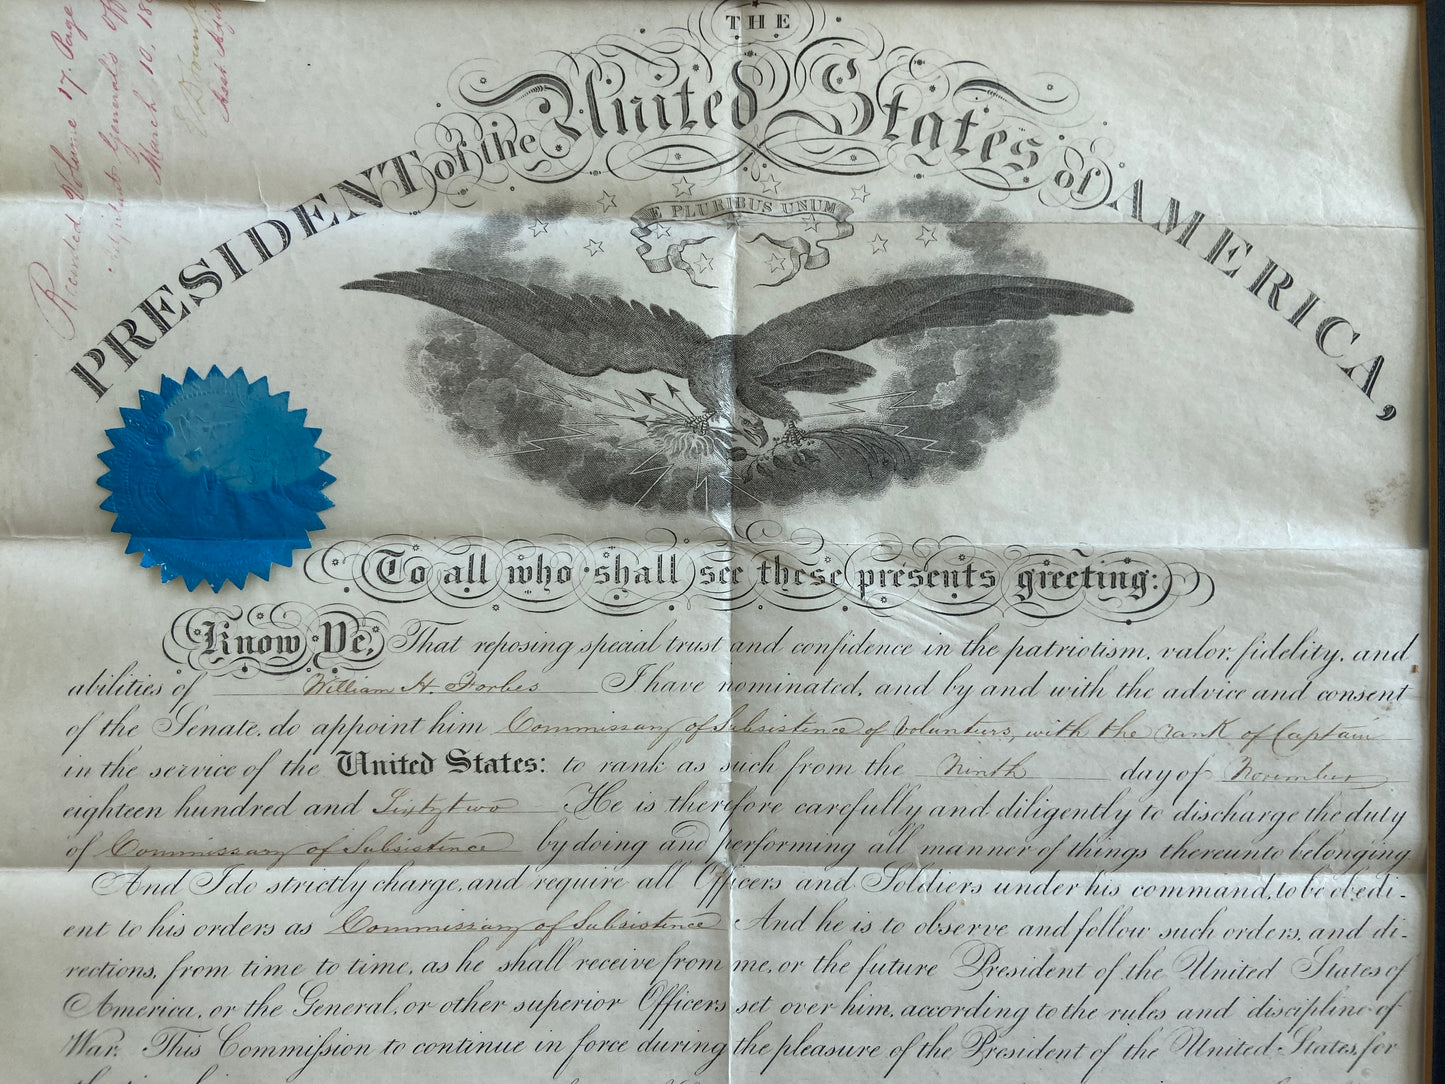 Recorded Volume 17. Page
Adjutant General's Off
March 10. 18
THE
PRESIDENT of the United States of AMERICA,
E PLURIBUS UNUM
To all who shall see these presents greeting:
Know Ye, That reposing special trust and confidence in the patriotism, valor, fidelity, and
abilities of William H. Forbes I have nominated, and by and with the advice and consent
of the Senate, do appoint him Commissary of Subsistence of Volunteers, with the rank of Captain
in the service of the United States: to rank as such from the Ninth day of November
eighteen hundred and Sixty two He is therefore carefully and diligently to discharge the duty
of Commissary of Subsistence by doing and performing all manner of things thereunto belonging.
And I do strictly charge, and require all Officers and Soldiers under his command, to be obedi-
ent to his orders as Commissary of Subsistence And he is to observe and follow such orders, and di-
rections, from time to time, as he shall receive from me, or the future President of the United States of
America, or the General, or other superior Officers set over him, according to the rules and discipline of
War. This Commission to continue in force during the pleasure of the President of the United States, for